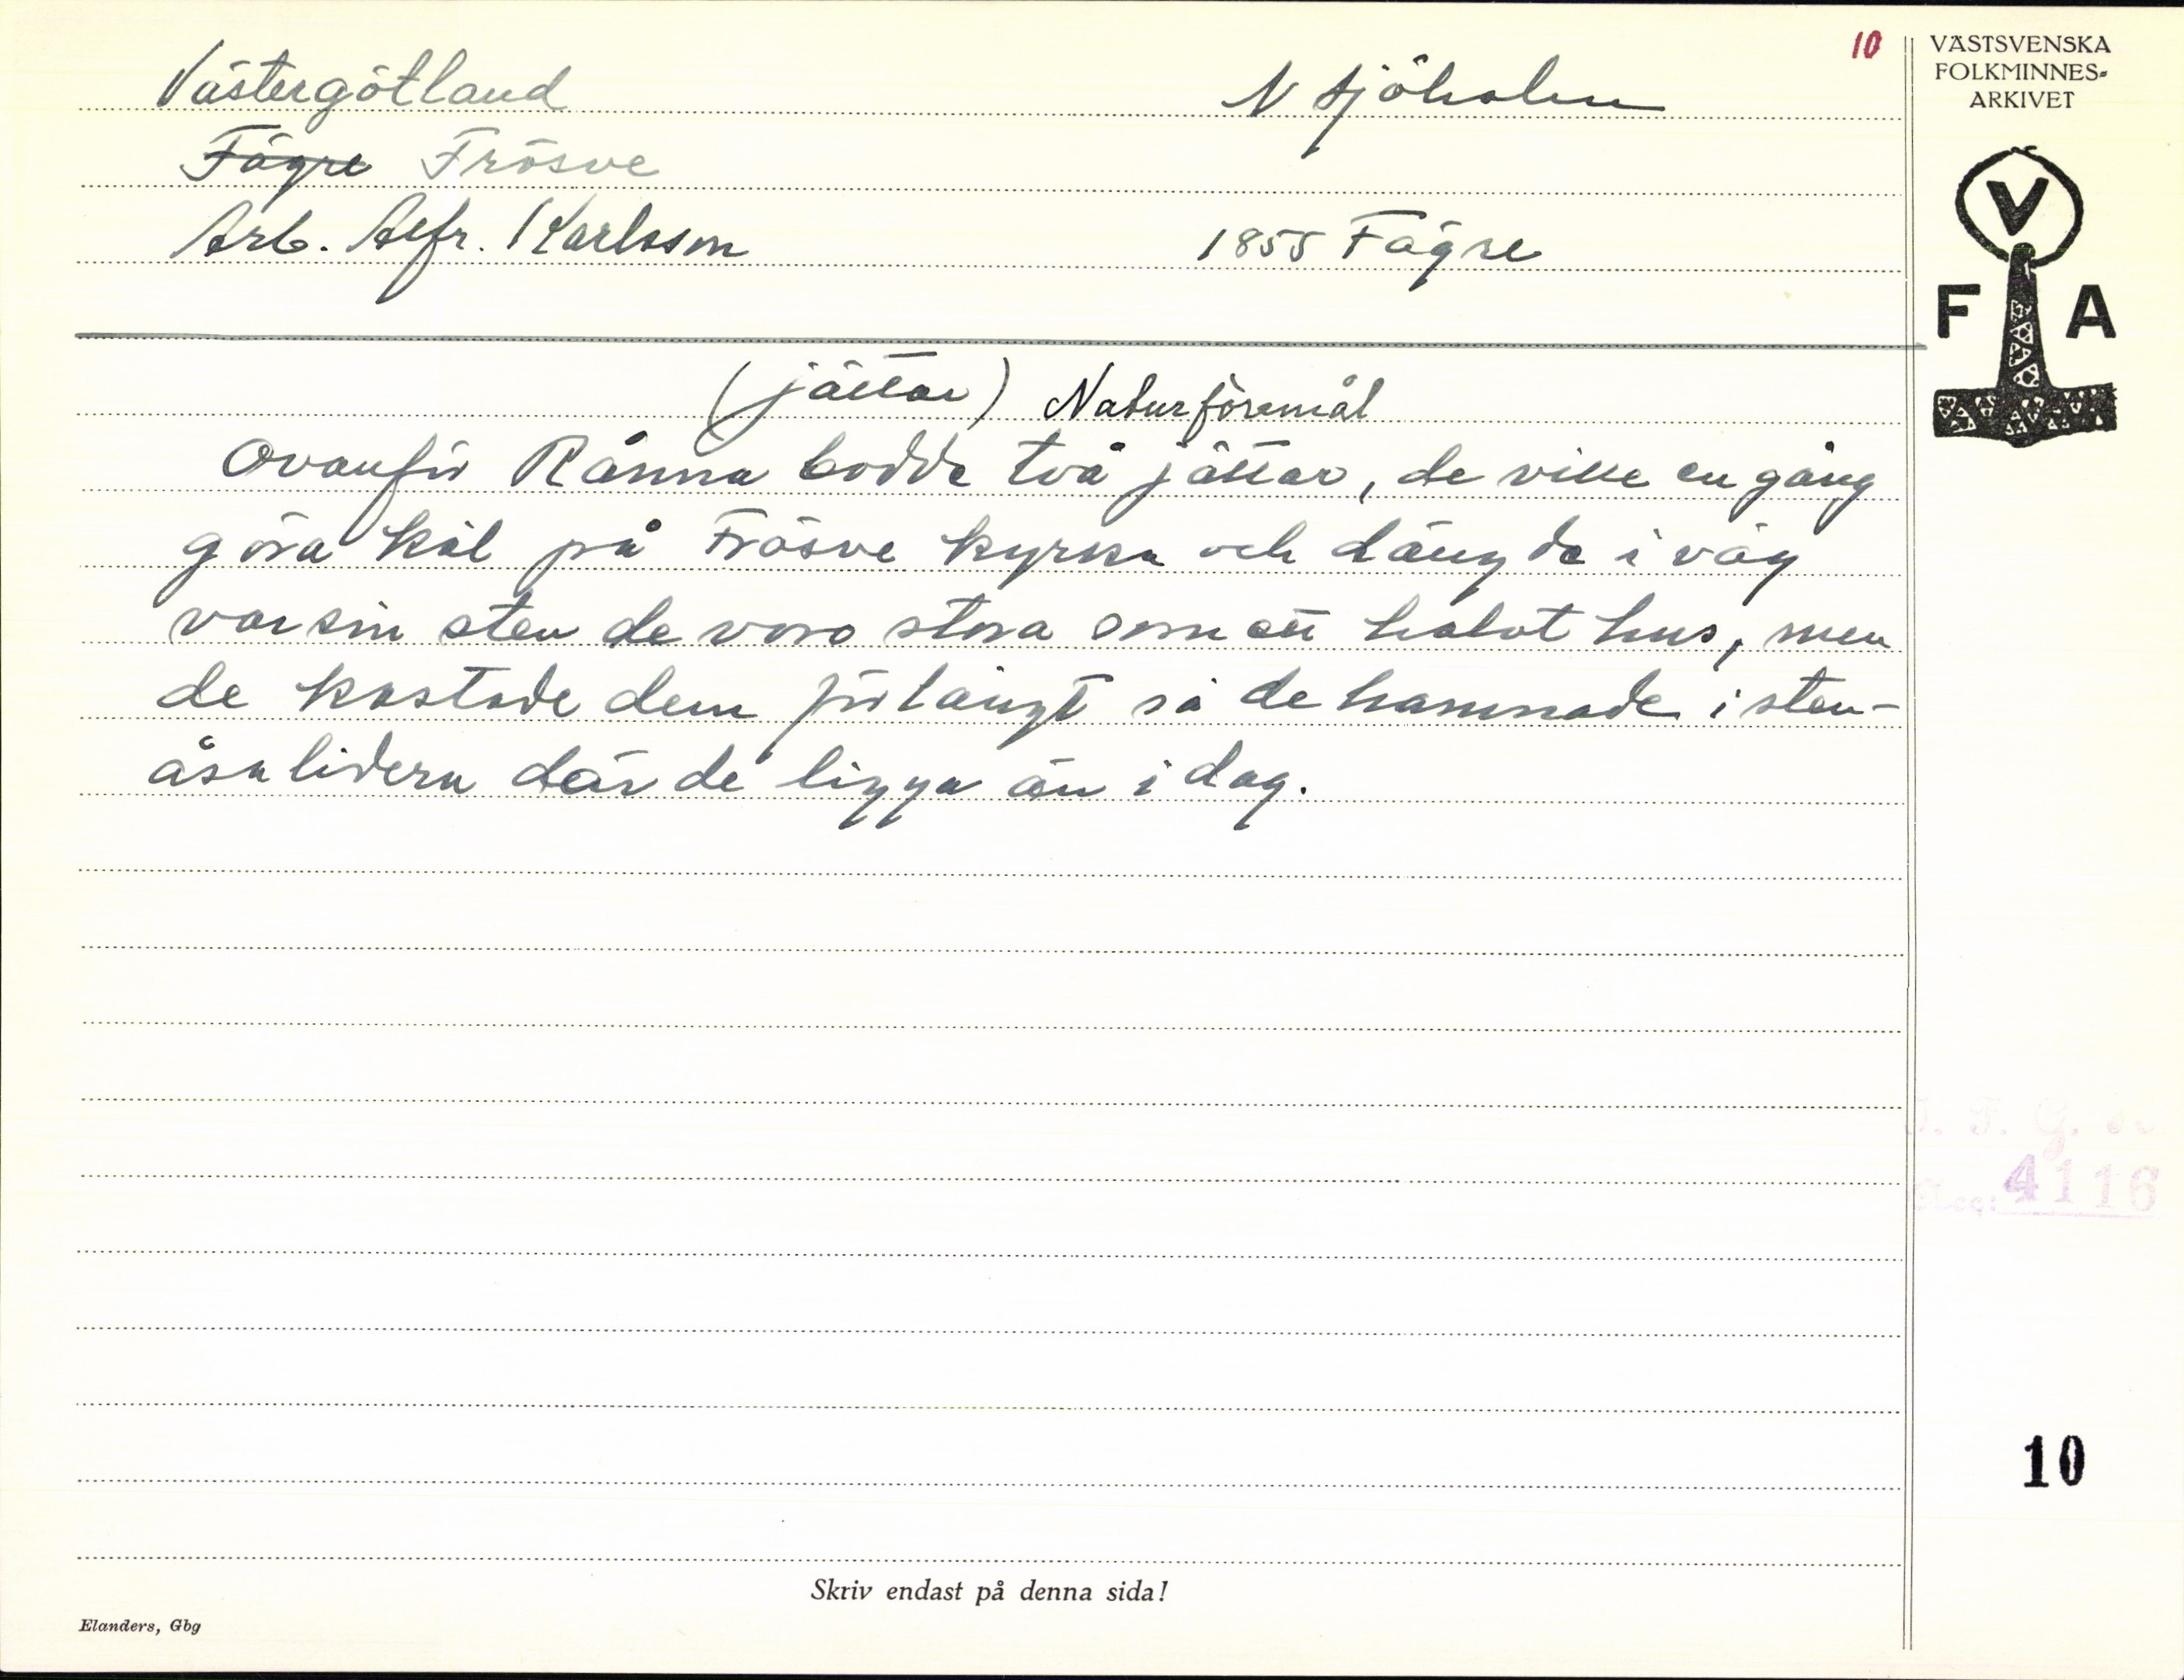 10
VÄSTSVENSKA
FOLKMINNES-
ARKIVET
Västergötland N Sjöholm
Fägre Frösve
Arb. Alfr. Karlsson 1855 Fägre
V
F A
(jättar) Naturföremål
Ovanför Rånna bodde två jättar, de ville en gång
göra kål på Frösve kyrka och slängde i väg
varsin sten de voro stora som ett halvt hus, men
de kastade dem för långt så de hamnade i sten-
åsaliderna där de ligga än i dag.
4116
10
Skriv endast på denna sida!
Elanders, Gbg